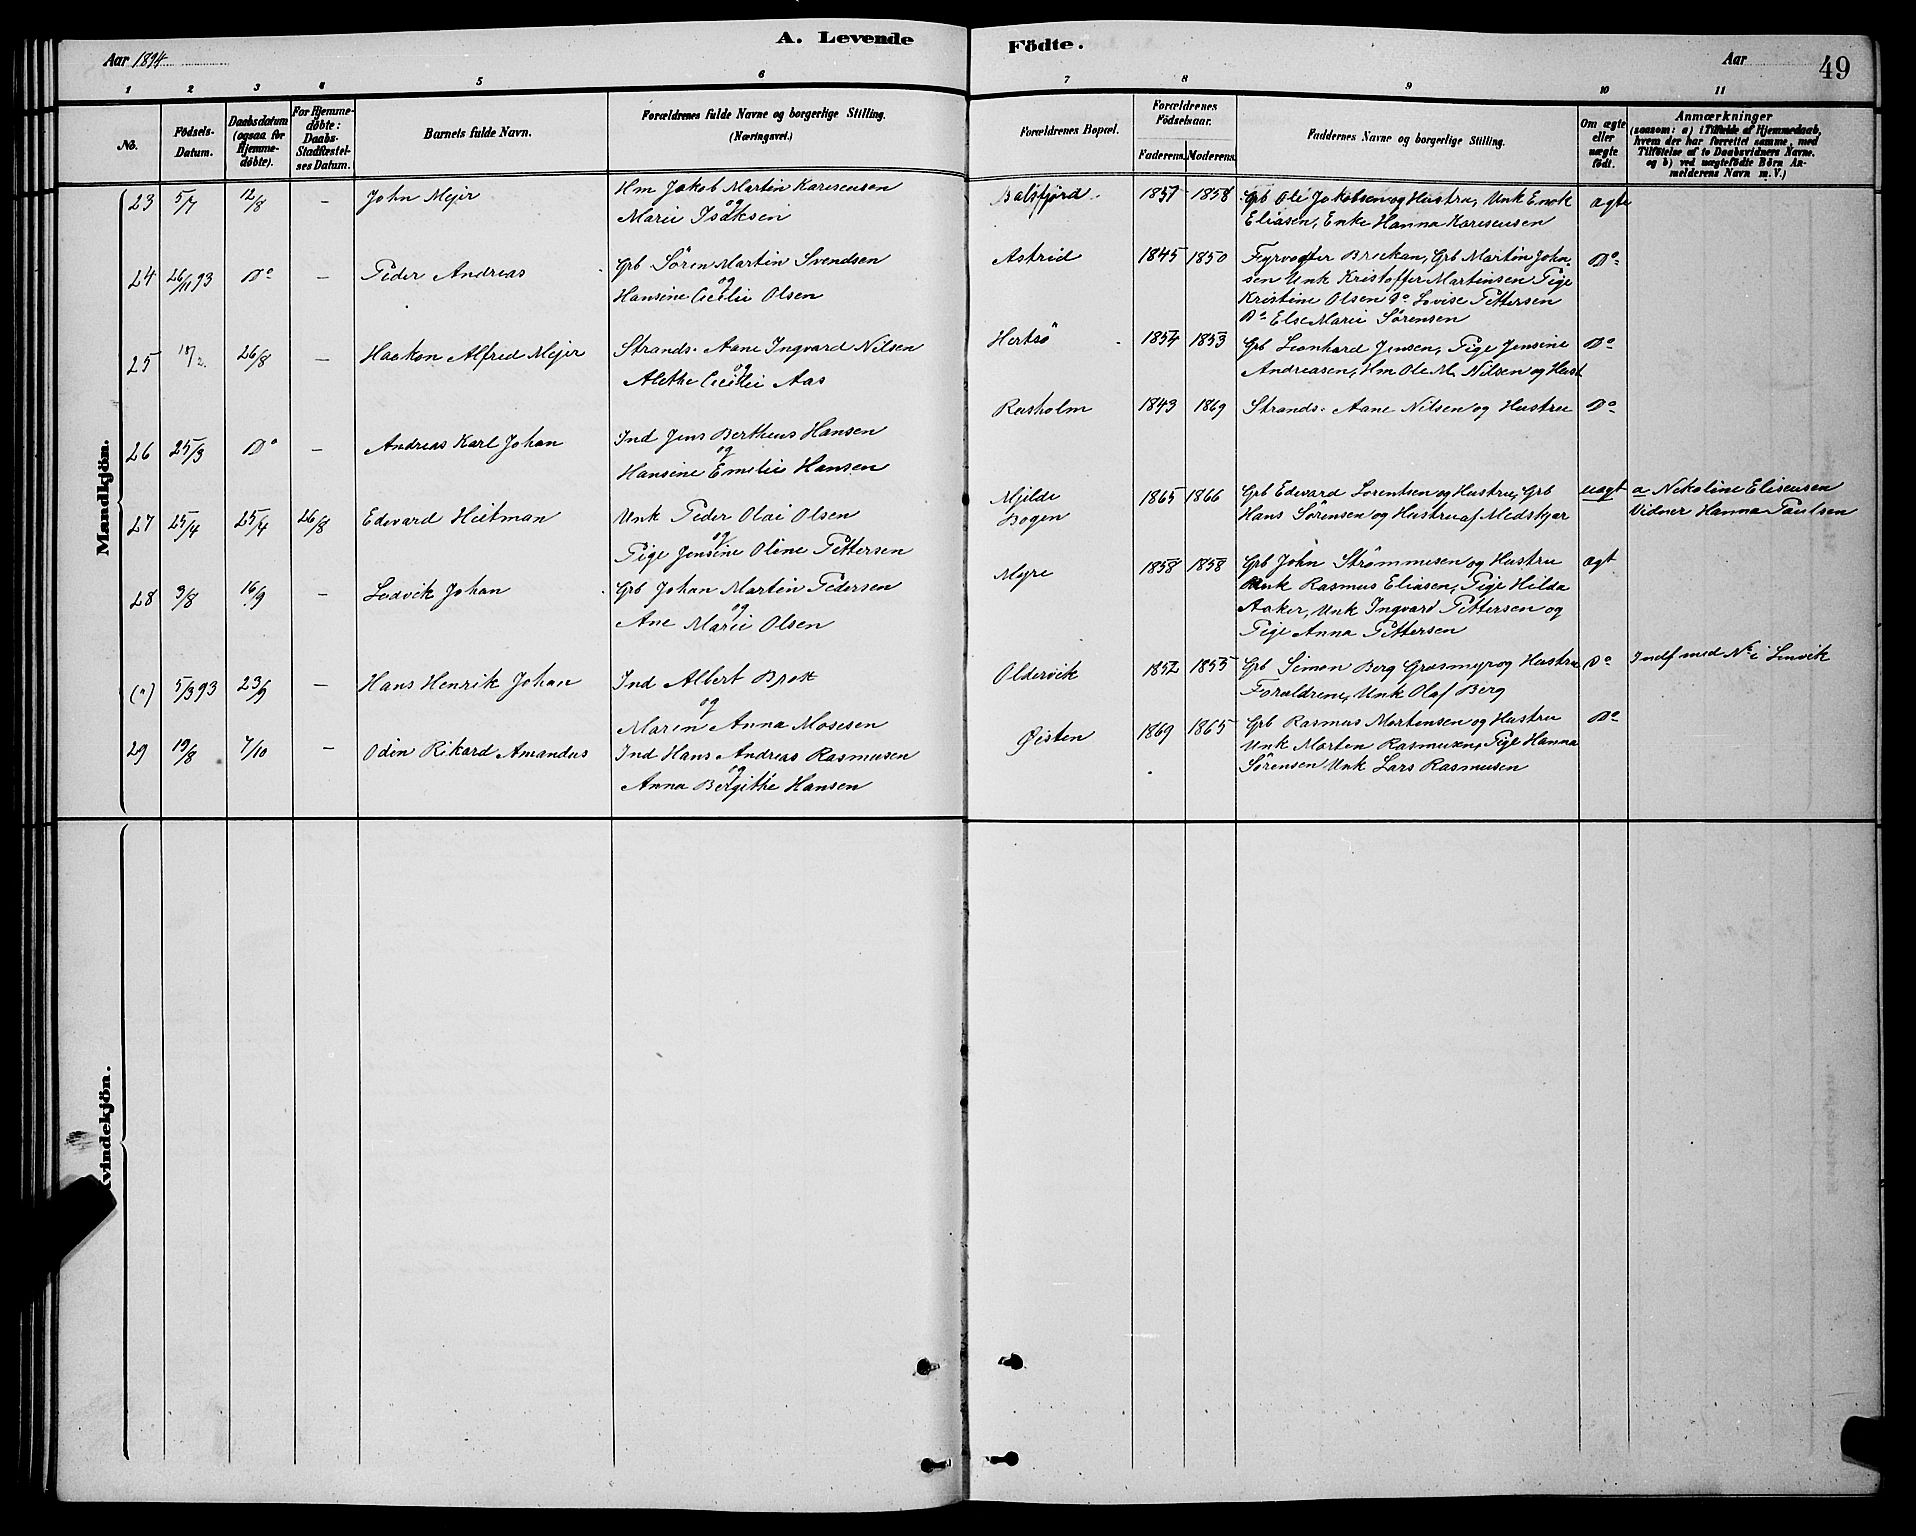 A. Levende
Födte.
Aar 1894
Aar
49
1 2 3 4 5 6 7 8 9 10 11
No.
Födsels-
Datum.
Daabsdatum
(ogsaa for
Hjemme-
døbte).
For Hjemme-
døbte:
Daabs-
Stadfæstel-
ses Datum.
Barnets fulde Navn.
Forældrenes fulde Navne og borgerlige Stilling.
(Næringsvei.)
Forældrenes Bopæl.
Forældrenes
Födselsaar.
Faderens. Moderens.
Faddernes Navne og borgerlige Stilling.
Om ægte
eller
uægte
födt.
Anmærkninger
(saasom: a) i Tilfælde af Hjemmedaab,
hvem der har forrettet samme, med
Tilföielse af to Daabsvidners Navne,
og b) ved uægtefödte Börn An-
melderens Navn m. V.)
Mandkjön.
23 5/7 12/8 – John Mejer
Hm Jakob Martin Karesensen
og
Marie Isaksen
Balsfjord 1857 1858
Grb Ole Jakobsen og Hustru, Unk Enok
Eliasen, Enke Hanna Karesensen
ægte
24 26/11 93 Do – Peder Andreas
Grb Sören Martin Svendsen
og
Hansine Cecilie Olsen
Astrid 1845 1850
Fyrvogter Breckan, Grb Martin John-
sen Unk Kristoffer Martinsen Pige
Kristine Olsen Do Lovise Pettersen
Do Else Marie Sørensen
Do
25 26/8 – Haakon Alfred Mejer
Strands. Aane Ingvard Nilsen
og
Alethe Cecilie Aas
Hertsö 1854 1853
Grb Leonhard Jensen, Pige Jensine
Andreasen, Hm Ole M. Nilsen og Hust
Do
26 25/3 Do – Andreas Karl Johan
Ind Jens Bertheus Hansen
og
Hansine Emilie Hansen
Rusholm 1843 1869
Strands. Aane Nilsen og Hustru
Do
27 25/4 25/4 26/8 Edevard Heitman
Unk Peder Olai Olsen
og
Pige Jensine Oline Pettersen
Mjelde
Bogen
1865 1866
Grb Edevard Lorentsen og Hustru, Grb
Hans Sørensen og Hustru af Medskjer
uægt
a Nikoline Eliseusen
Vidner Hanna Paulsen
28 3/8 16/9 – Lodvik Johan
Grb Johan Martin Pedersen
og
Ane Marie Olsen
Myre 1858 1858
Grb John Strømmesen og Hustru
Unk Rasmus Eliasen, Pige Hilda
Aaker, Unk Ingvard Pettersen og
Pige Anna Pettersen
ægt
(") 5/3 93 23/9 – Hans Henrik Johan
Ind Albert Brox
og
Maren Anna Mosesen
Oldervik 1852 1855
Grb Simon Berg Grasmyr og Hustru
Forældrene, Unk Olaf Berg
Do
Indf med No i Lenvik
29 19/8 7/10 – Odin Rikard Amandus
Ind Hans Andreas Rasmusen
og
Anna Bergithe Hansen
Øisten 1869 1865
Grb Rasmus Mortensen og Hustru
Unk Morten Rasmusen, Pige Hanna
Sørensen Unk Lars Rasmusen
Do
Kvindekjön.